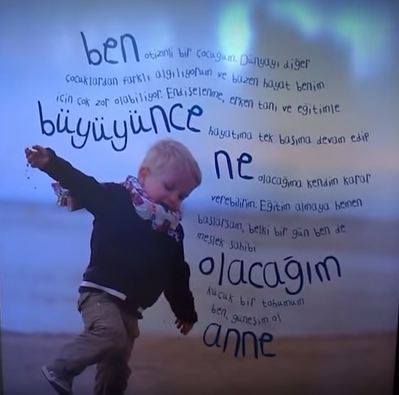 ben otizmli bir çocuğum. Dünyayı diğer
çocuklardan farklı algılıyorum ve bazen hayat benim
için çok zor olabiliyor. Endişelenme, erken tanı ve eğitimle
büyüyünce hayatıma tek başıma devam edip
ne olacağıma kendim karar
verebilirim. Eğitim almaya hemen
başlarsam, belki bir gün ben de
meslek sahibi
olacağım
küçük bir tohumum
ben, güneşim ol
anne